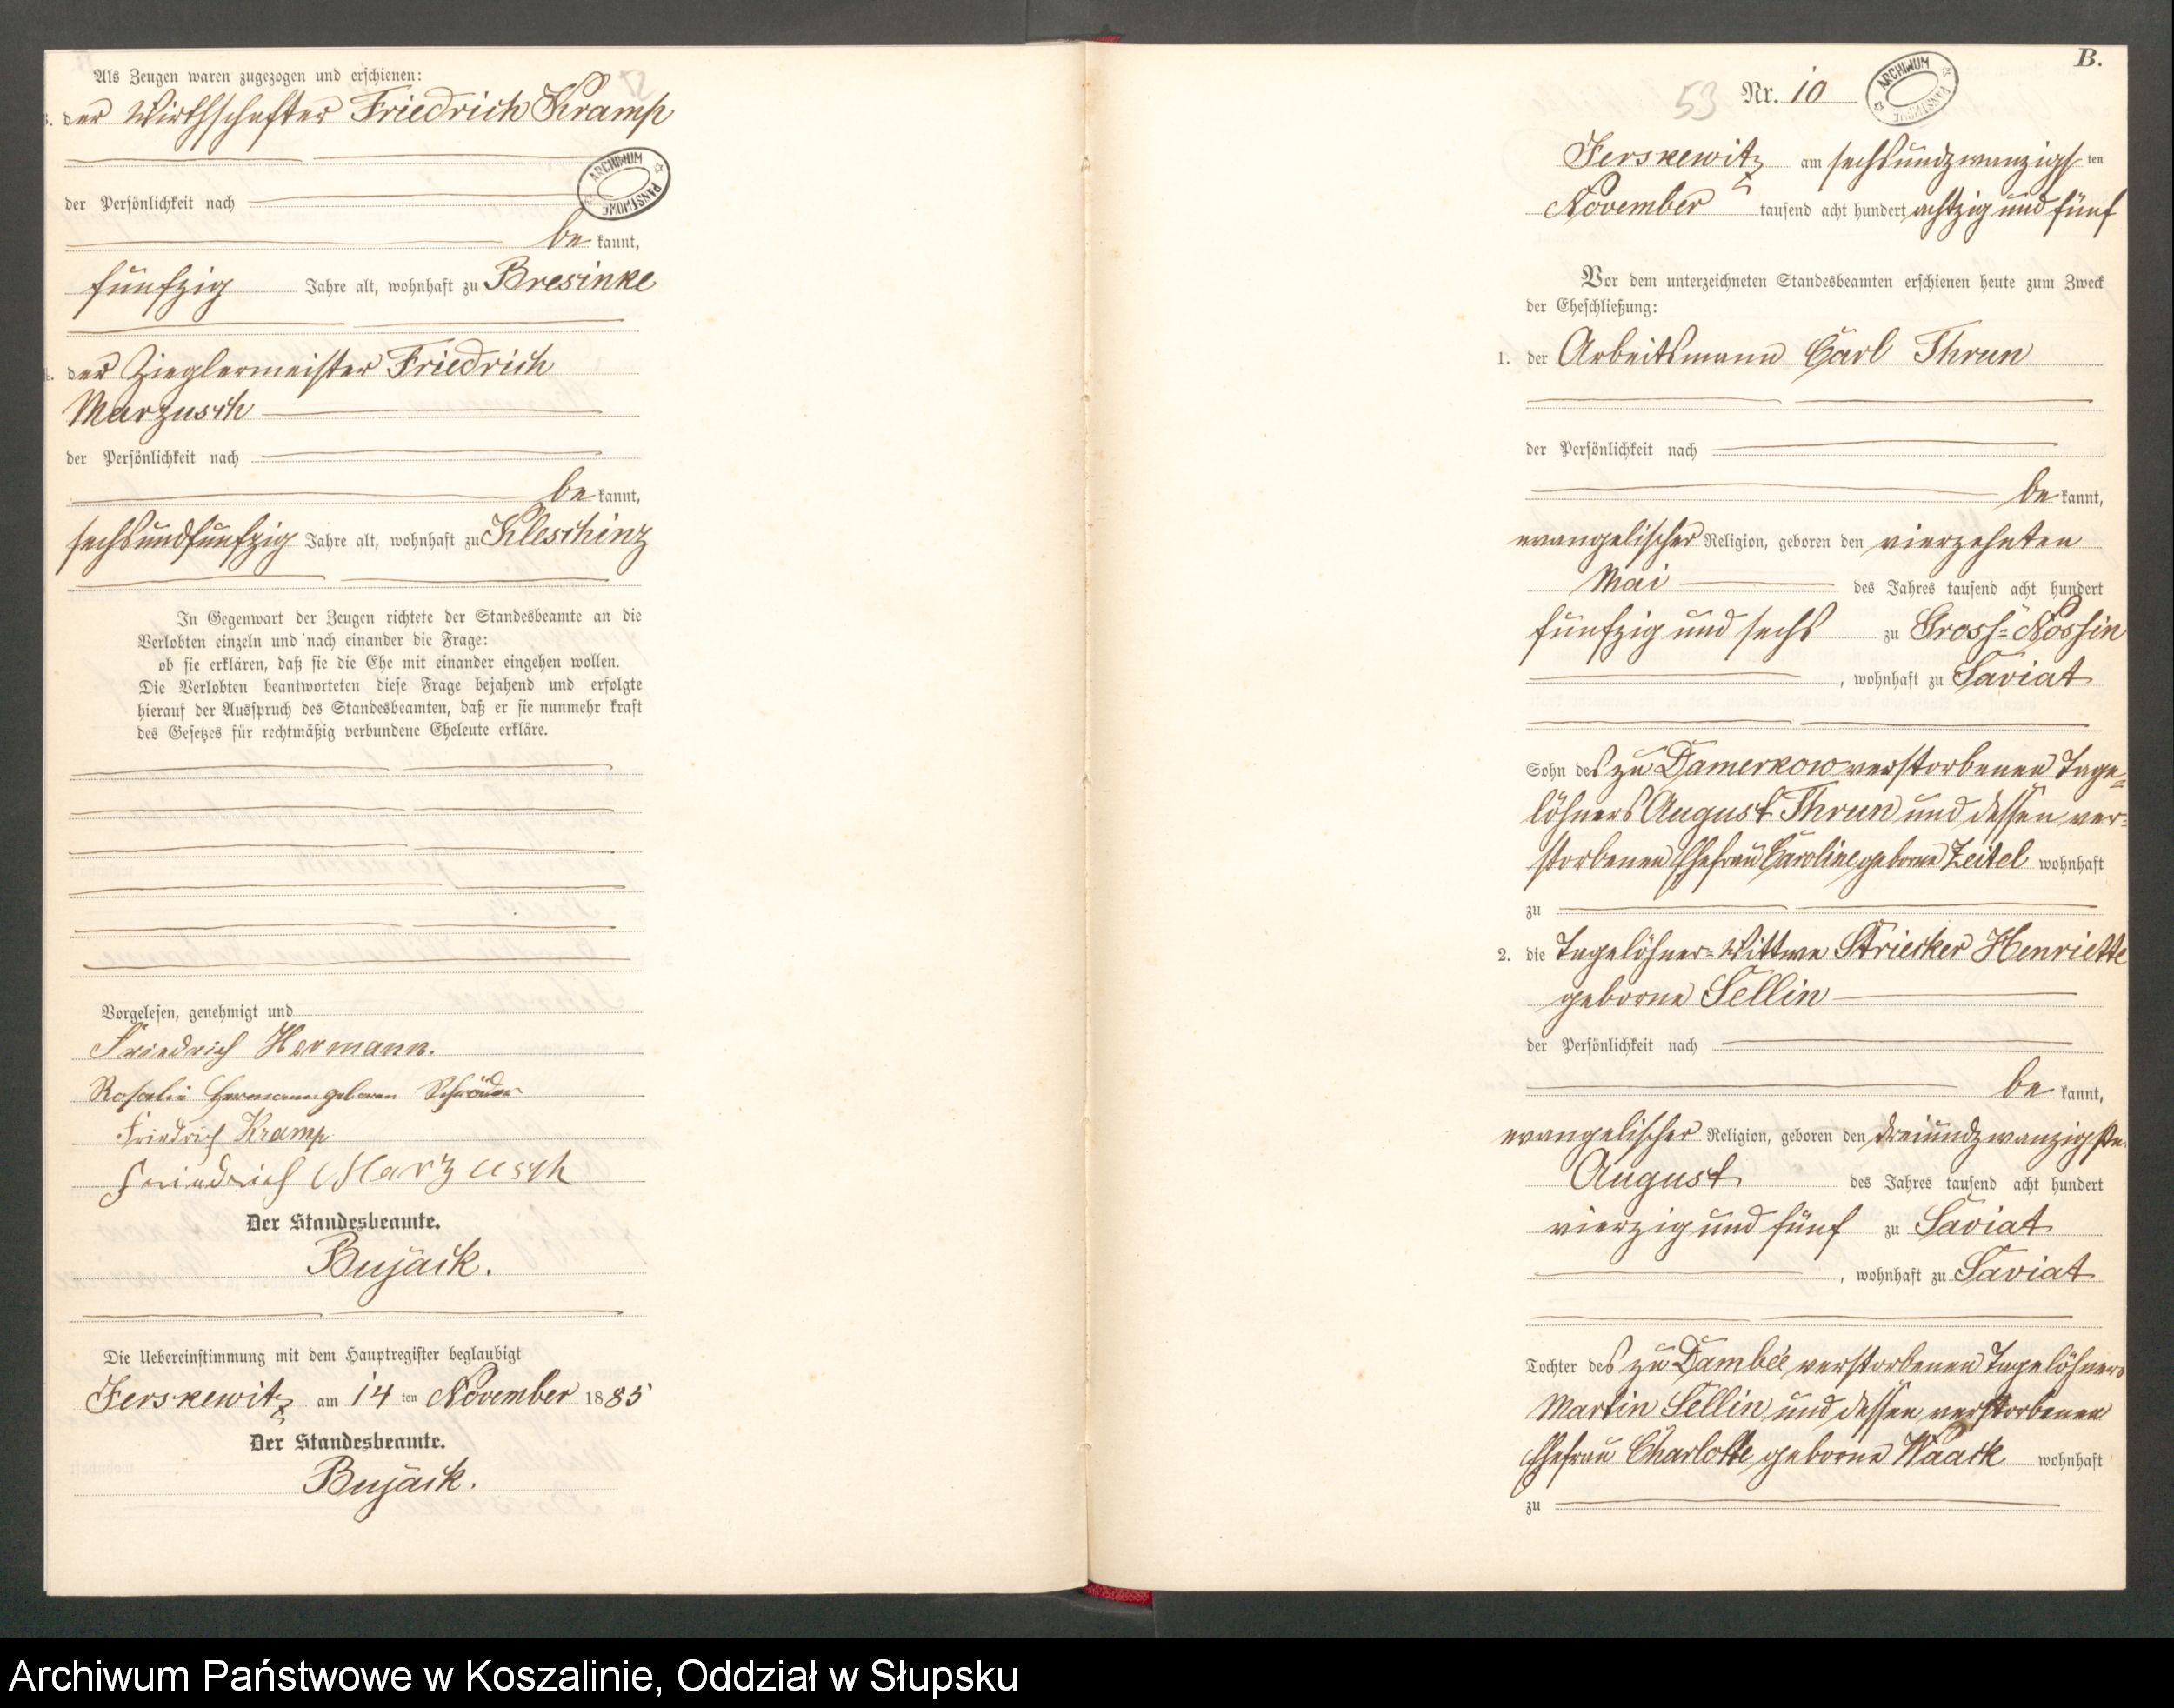 Als Zeugen waren zugezogen und erschienen:
3. der Wirthschafter Friedrich Kramp
der Persönlichkeit nach
be kannt,
fünfzig Jahre alt, wohnhaft zu Bresinke
4. der Zieglermeister Friedrich
Marzusch
der Persönlichkeit nach
be kannt,
sechsundfünfzig Jahre alt, wohnhaft zu Kleschinz
In Gegenwart der Zeugen richtete der Standesbeamte an die
Verlobten einzeln und nach einander die Frage:
ob sie erklären, daß sie die Ehe mit einander eingehen wollen.
Die Verlobten beantworteten diese Frage bejahend und erfolgte
hierauf der Ausspruch des Standesbeamten, daß er sie nunmehr kraft
des Gesetzes für rechtmäßig verbundene Eheleute erkläre.
Vorgelesen, genehmigt und
Friedrich Hermann.
Rosalie Hermann geboren Schröder
Friedrich Kramp
Friedrich Marzusch
Der Standesbeamte.
Bujack.
Die Uebereinstimmung mit dem Hauptregister beglaubigt
Jerskewitz am 14 ten November 1885
Der Standesbeamte.
Bujack.
B.
53 Nr. 10
ARCHIWUM PAŃSTWOWE
Jerskewitz am sechsundzwanzigs ten
November tausend acht hundert achtzig und fünf
Vor dem unterzeichneten Standesbeamten erschienen heute zum Zweck
der Eheschließung:
1. der Arbeitsmann Carl Thrun
der Persönlichkeit nach
be kannt,
evangelischer Religion, geboren den vierzehnten
Mai des Jahres tausend acht hundert
fünfzig und sechs zu Gross-Nossin
, wohnhaft zu Saviat
Sohn des zu Damerkow verstorbenen Tage=
löhners August Thrun und dessen ver=
storbenen Ehefrau Caroline geborne Zeitel wohnhaft
zu
2. die Tagelöhner-Wittwe Striecker Henriette
geborne Sellin
der Persönlichkeit nach
be kannt,
evangelischer Religion, geboren den dreiundzwanzigsten
August des Jahres tausend acht hundert
vierzig und fünf zu Saviat
, wohnhaft zu Saviat
Tochter des zu Dambee verstorbenen Tagelöhners
Martin Sellin und dessen verstorbenen
Ehefrau Charlotte geborne Waack wohnhaft
zu
Archiwum Państwowe w Koszalinie, Oddział w Słupsku